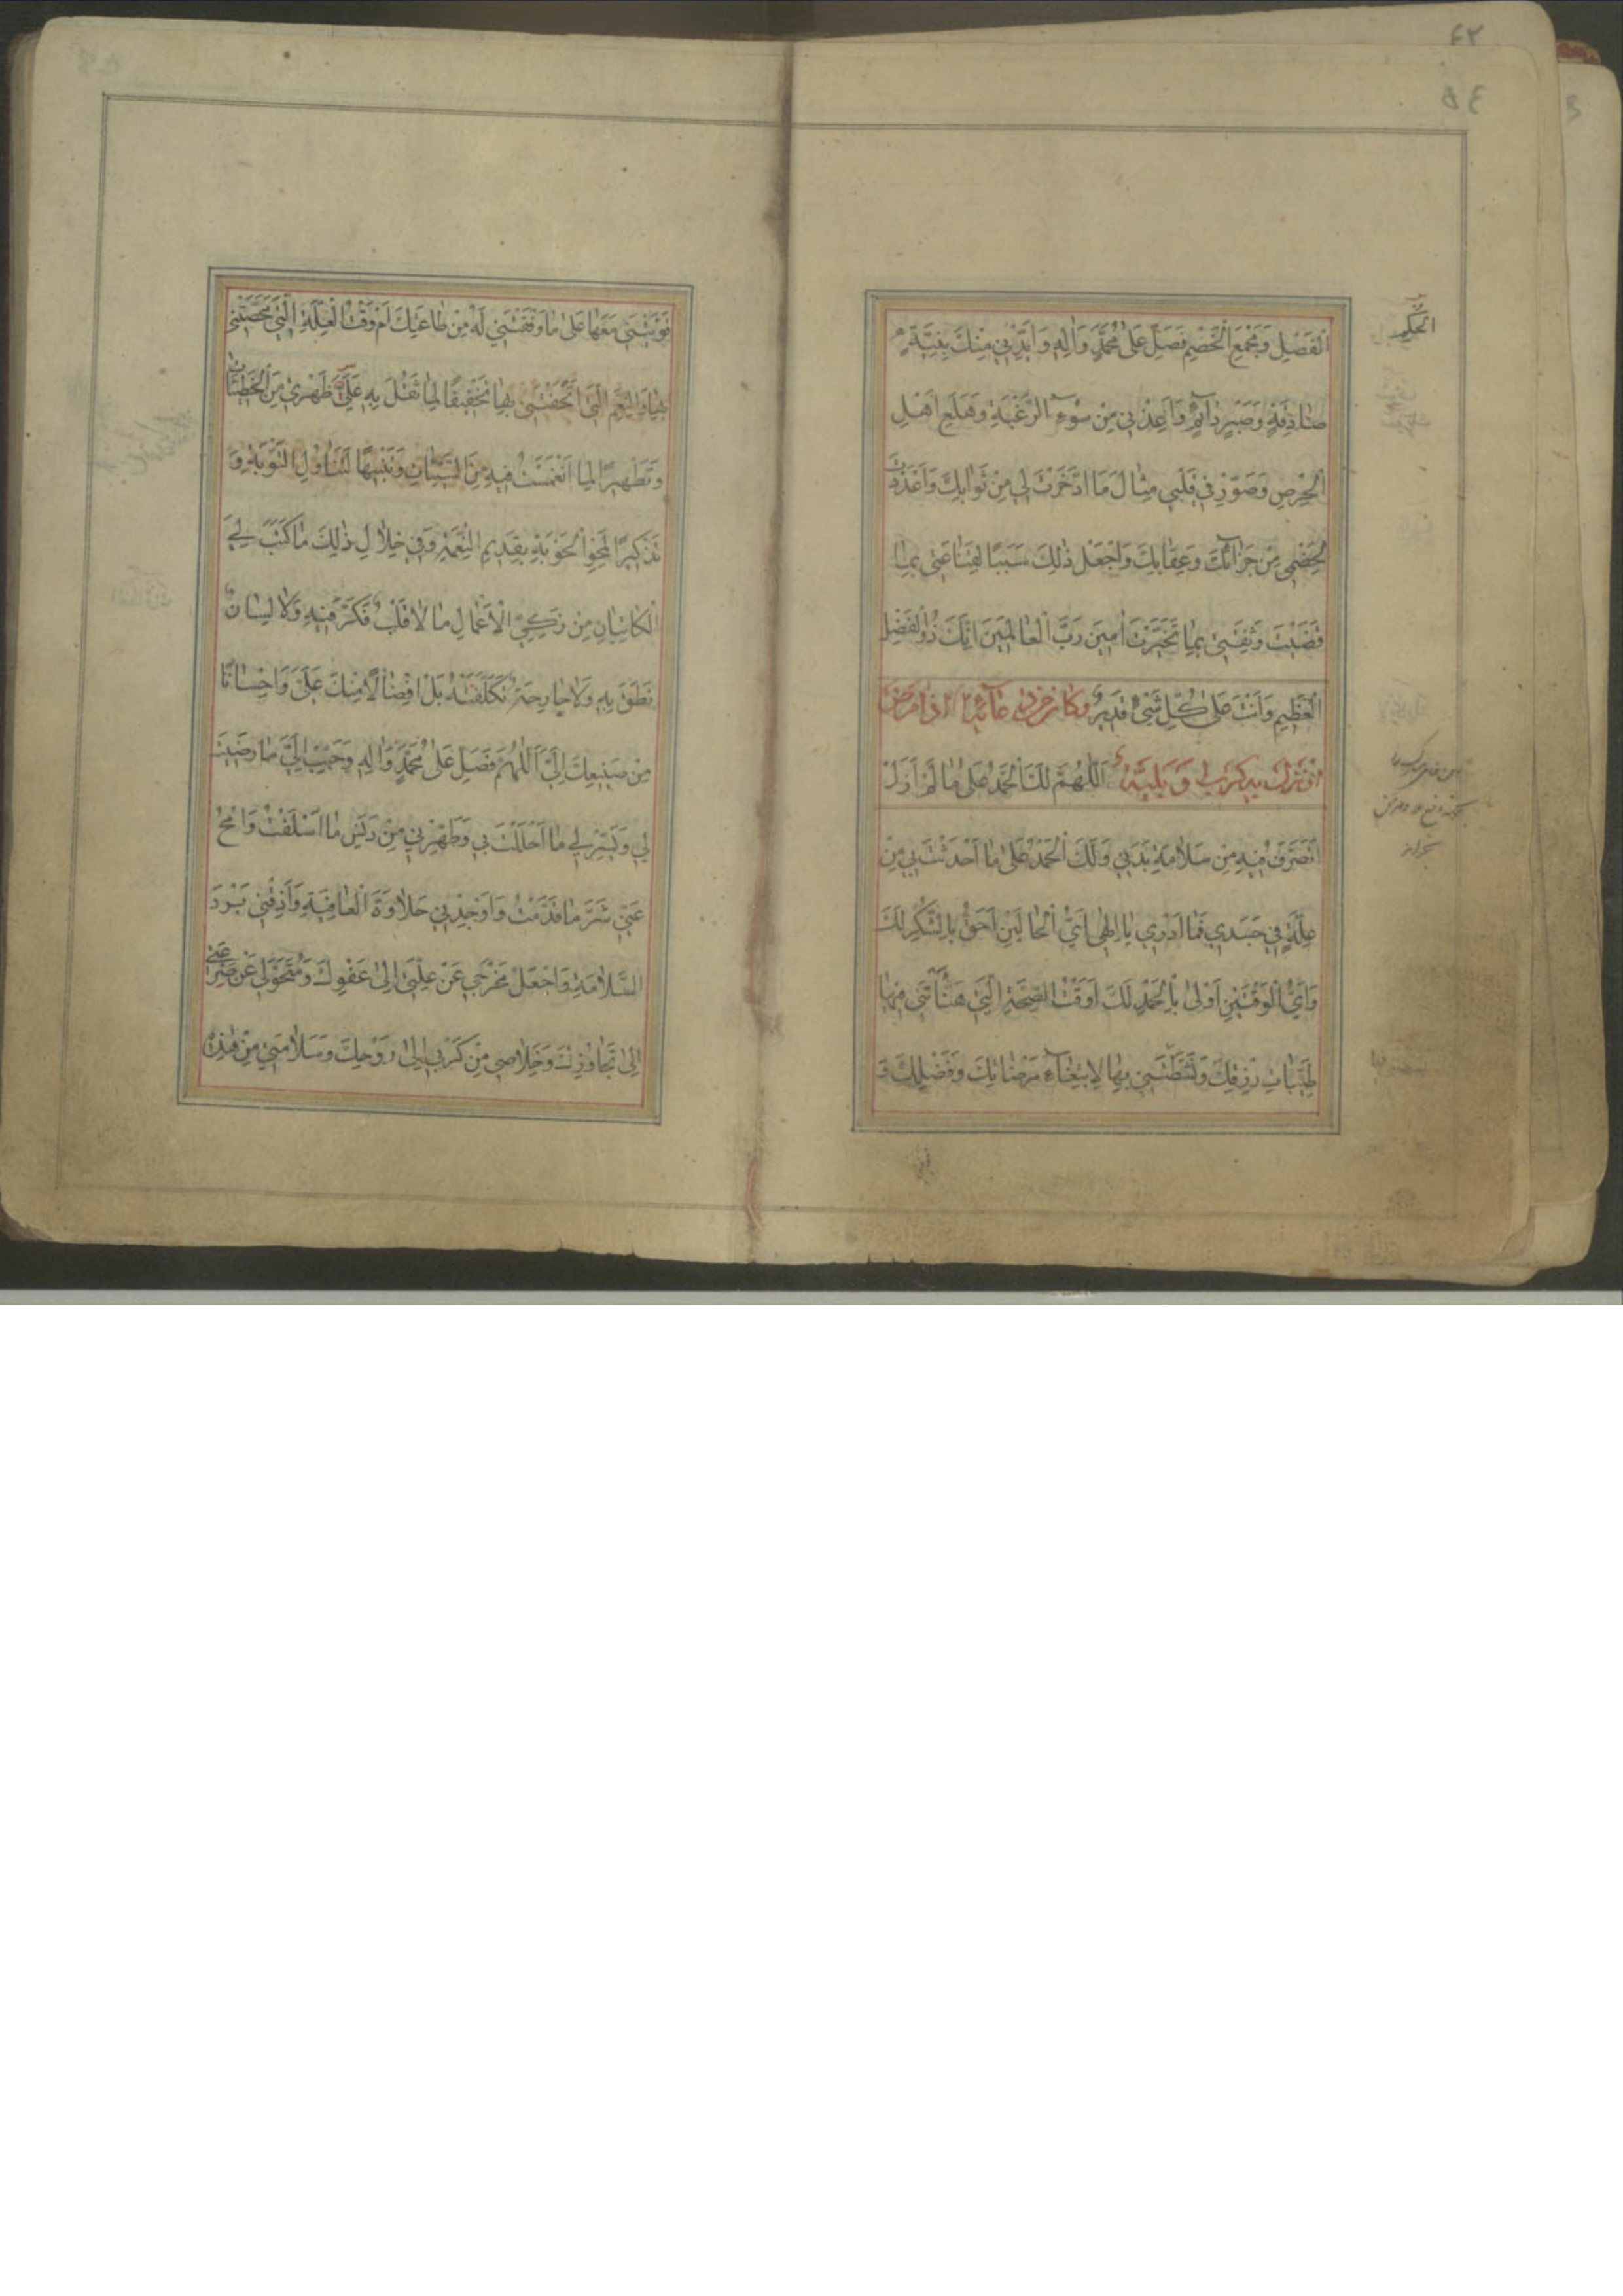 ٤٢
٥٤
الْفَصْلِ وَمَجْمَعِ الْخَصْمِ فَصَلِّ عَلٰى مُحَمَّدٍ وَاٰلِهِ وَاَيِّدْنِي مِنْكَ بِنِيَّةٍ
الحكم
صٰادِقَةٍ وَصَبْرٍ دٰآئِمٍ وَاَعِذْنِي مِنْ سُوۤءِ الرَّغْبَةِ وَهَلَعِ اَهْلِ
الْحِرْصِ وَصَوِّرْ فِي قَلْبِي مِثٰالَ مَا ادَّخَرْتَ لِي مِنْ ثَوٰابِكَ وَاَعْدَدْتَ
لِخَصْمِي مِنْ جَزٰآئِكَ وَعِقٰابِكَ وَاجْعَلْ ذٰلِكَ سَبَبًا لِقَنٰاعَتِي بِمٰا
قَضَيْتَ وَثِقَتِي بِمٰا تَخَيَّرْتَ اٰمِينَ رَبَّ الْعٰالَمِينَ اِنَّكَ ذُو الْفَضْلِ
الْعَظِيمِ وَاَنْتَ عَلٰى كُلِّ شَيْءٍ قَدِيرٌ وَكٰانَ مِنْ دُعٰآئِهِ اِذٰا مَرِضَ
اَوْ نَزَلَ بِهِ كَرْبٌ اَوْ بَلِيَّةٌ اَللّٰهُمَّ لَكَ الْحَمْدُ عَلٰى مٰا لَمْ اَزَلْ
اَتَصَرَّفُ فِيهِ مِنْ سَلٰامَةِ بَدَنِي وَلَكَ الْحَمْدُ عَلٰى مٰا اَحْدَثْتَ بِي مِنْ
عِلَّةٍ فِي جَسَدِي فَمٰا اَدْرِي يٰا اِلٰهِي اَيُّ الْحٰالَيْنِ اَحَقُّ بِالشُّكْرِ لَكَ
وَاَيُّ الْوَقْتَيْنِ اَوْلٰى بِالْحَمْدِ لَكَ اَوَقْتُ الصِّحَّةِ الَّتِي هَنَّأْتَنِي فِيهٰا
طَيِّبٰاتِ رِزْقِكَ وَنَشَّطْتَنِي بِهٰا لِابْتِغٰآءِ مَرْضٰاتِكَ وَفَضْلِكَ وَ
قَوَّيْتَنِي مَعَهٰا عَلٰى مٰا وَفَّقْتَنِي لَهُ مِنْ طٰاعَتِكَ اَمْ وَقْتُ الْعِلَّةِ الَّتِي مَحَّصْتَنِي
بِهٰا وَالنِّعَمِ الَّتِي اَتْحَفْتَنِي بِهٰا تَخْفِيفًا لِمٰا ثَقُلَ بِهِ عَلَيَّ ظَهْرِي مِنَ الْخَطِيئٰاتِ
وَتَطْهِيرًا لِمَا انْغَمَسْتُ فِيهِ مِنَ السَّيِّئٰاتِ وَتَنْبِيهًا لِتَنٰاوُلِ التَّوْبَةِ وَ
تَذْكِيرًا لِمَحْوِ الْحَوْبَةِ بِقَدِيمِ النِّعْمَةِ وَفِي خِلٰالِ ذٰلِكَ مٰا كَتَبَ لِيَ
الْكٰاتِبٰانِ مِنْ زَكِيِّ الْاَعْمٰالِ مٰا لٰا قَلْبٌ فَكَّرَ فِيهِ وَلٰا لِسٰانٌ
نَطَقَ بِهِ وَلٰا جٰارِحَةٌ تَكَلَّفَتْهُ بَلْ اِفْضٰالًا مِنْكَ عَلَيَّ وَاِحْسٰانًا
مِنْ صَنِيعِكَ اِلَيَّ اَللّٰهُمَّ فَصَلِّ عَلٰى مُحَمَّدٍ وَاٰلِهِ وَحَبِّبْ اِلَيَّ مٰا رَضِيتَ
لِي وَيَسِّرْ لِي مٰا اَحْلَلْتَ بِي وَطَهِّرْنِي مِنْ دَنَسِ مٰا اَسْلَفْتُ وَامْحُ
عَنِّي شَرَّ مٰا قَدَّمْتُ وَاَوْجِدْنِي حَلٰاوَةَ الْعٰافِيَةِ وَاَذِقْنِي بَرْدَ
السَّلٰامَةِ وَاجْعَلْ مَخْرَجِي عَنْ عِلَّتِي اِلٰى عَفْوِكَ وَمُتَحَوَّلِي عَنْ صَرْعَتِي
اِلٰى تَجٰاوُزِكَ وَخَلٰاصِي مِنْ كَرْبِي اِلٰى رَوْحِكَ وَسَلٰامَتِي مِنْ هٰذِهِ